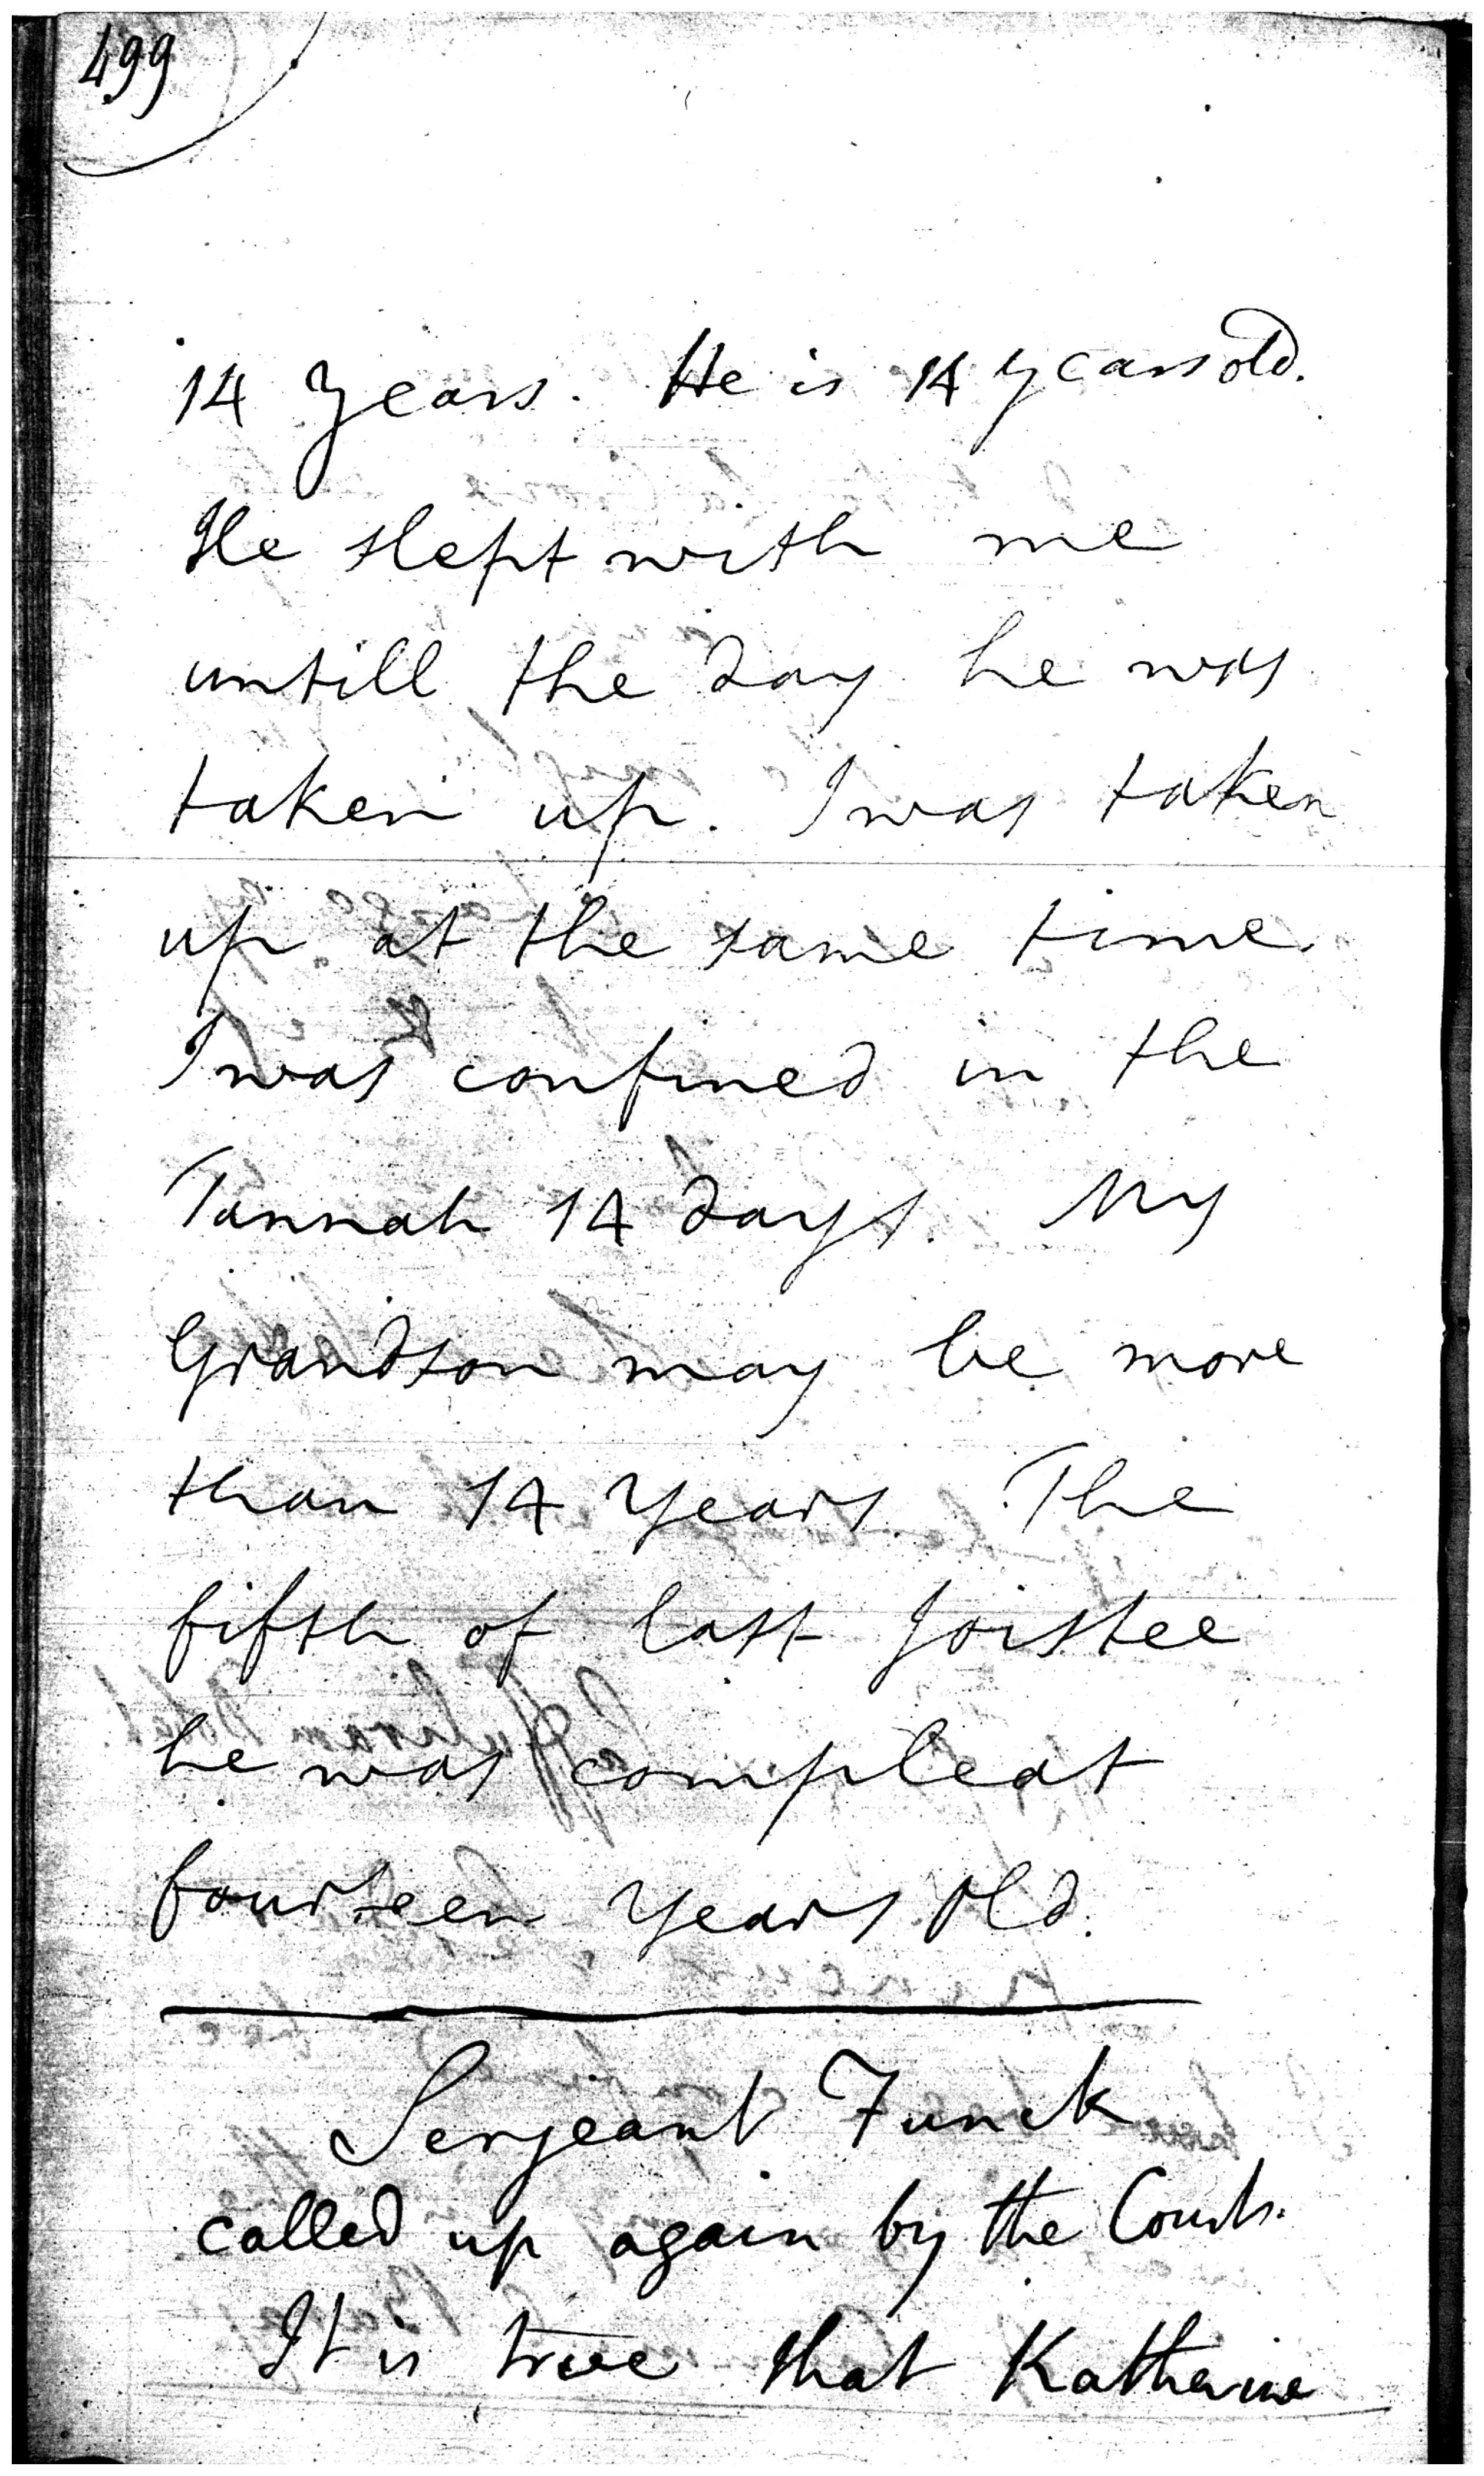 499
14 Years. He is 14 years old.
He slept with me
untill the day he was
taken up. I was taken
up at the same time
I was confined in the
Tannah 14 days. My
Grandson may be more
than 14 Years. The
fifth of last Joistee
he was compleat
fourteen Years old.
Serjeant Funck
called up again by the Court.
It is true that Katherine